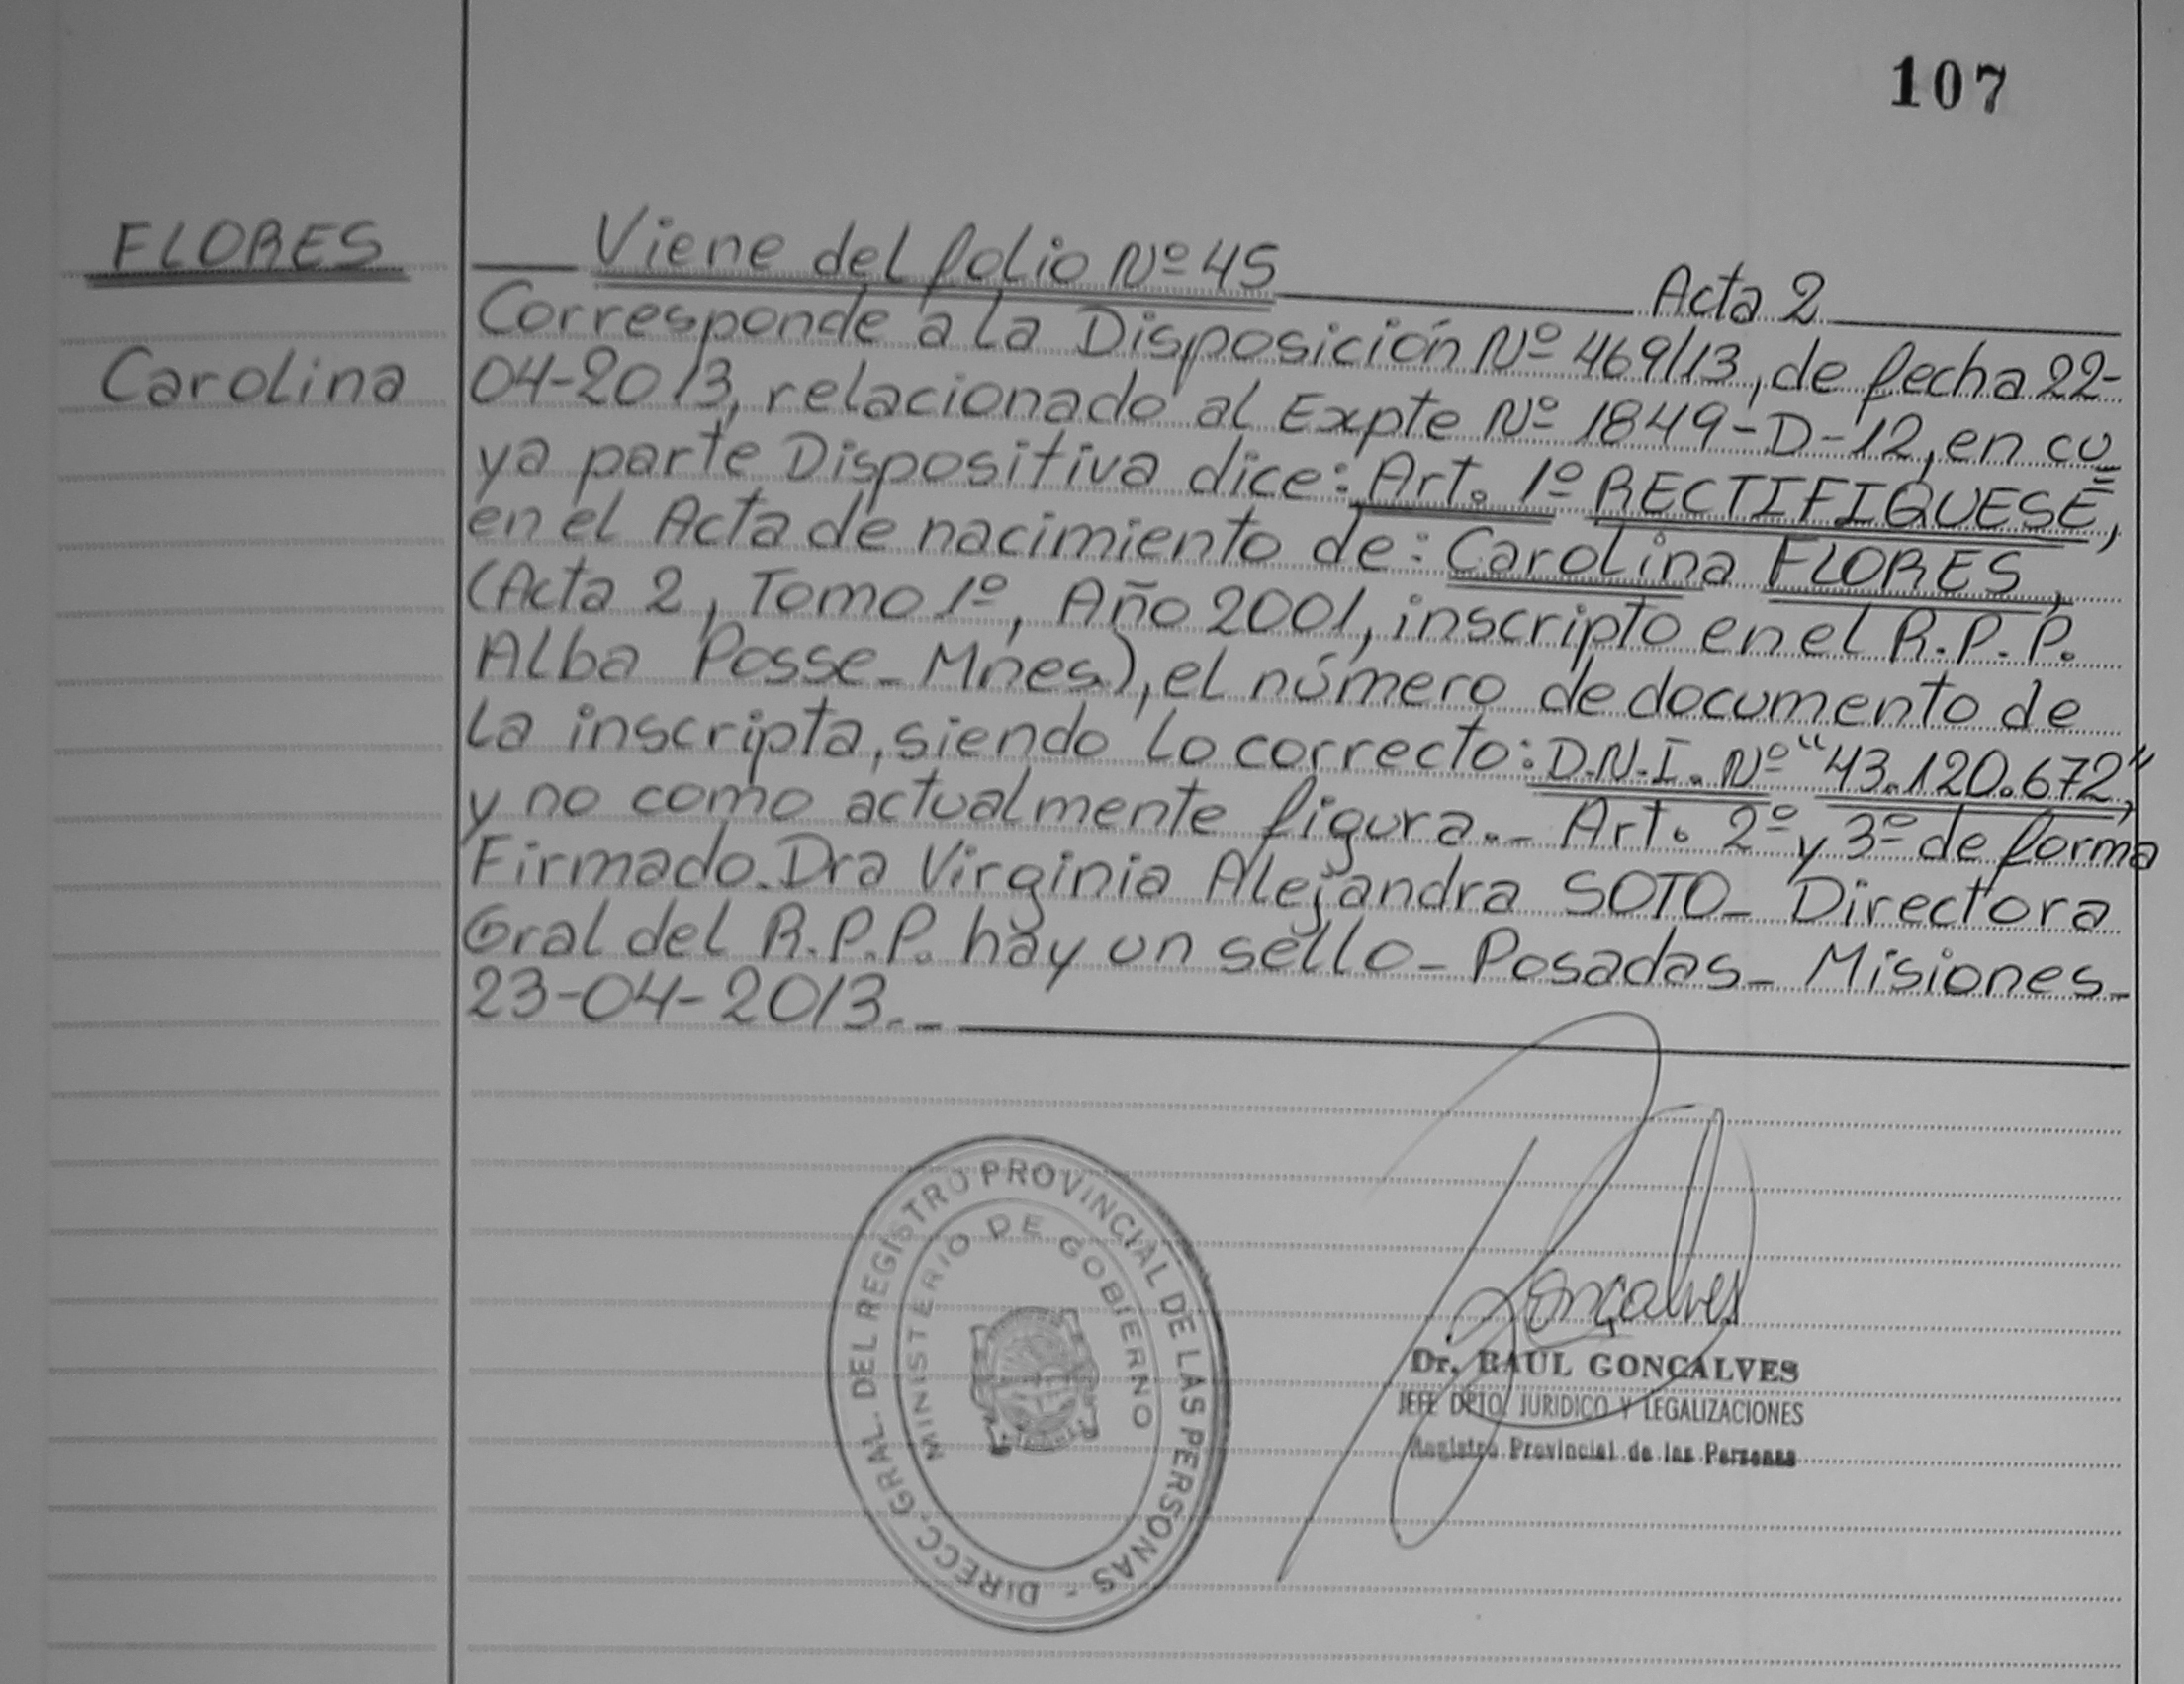 107
FLORES
Carolina
Viene del folio Nº 45 Acta 2
Corresponde a la Disposición Nº 469/13, de fecha 22-
04-2013, relacionado al Expte Nº 1849-D-12, en cu=
ya parte Dispositiva dice: Art. 1º RECTIFIQUESE,
en el Acta de nacimiento de: Carolina FLORES,
(Acta 2, Tomo 1º, Año 2001, inscripto en el R.P.P.
Alba Posse_Mnes), el número de documento de
la inscripta, siendo lo correcto: D.N.I. Nº "43.120.672",
y no como actualmente figura._ Art. 2º y 3º de forma
Firmado. Dra Virginia Alejandra SOTO_ Directora
Gral del R.P.P. hay un sello_ Posadas_ Misiones_
23-04-2013._
DIRECC. GRAL. DEL REGISTRO PROVINCIAL DE LAS PERSONAS -
MINISTERIO DE GOBIERNO
Gonçalves
Dr. RAUL GONCALVES
JEFE DPTO. JURIDICO Y LEGALIZACIONES
Registro Provincial de las Personas